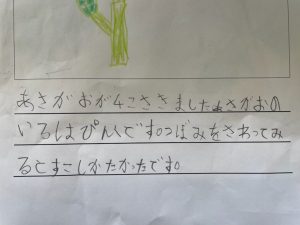 あさがおが4こさきましたあさがおの
いろはぴんくです。つばみをさわってみ
るとすこしかたかったです。